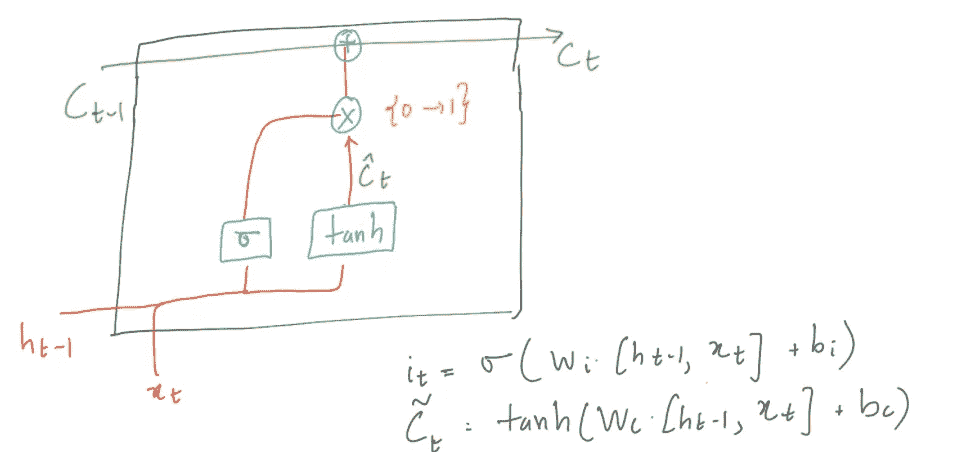 +
C_t
C_{t-1}
× {0→1}
Ĉ_t
σ tanh
h_{t-1}
x_t
i_t = σ(W_i · [h_{t-1}, x_t] + b_i)
C̃_t = tanh(W_c · [h_{t-1}, x_t] + b_c)